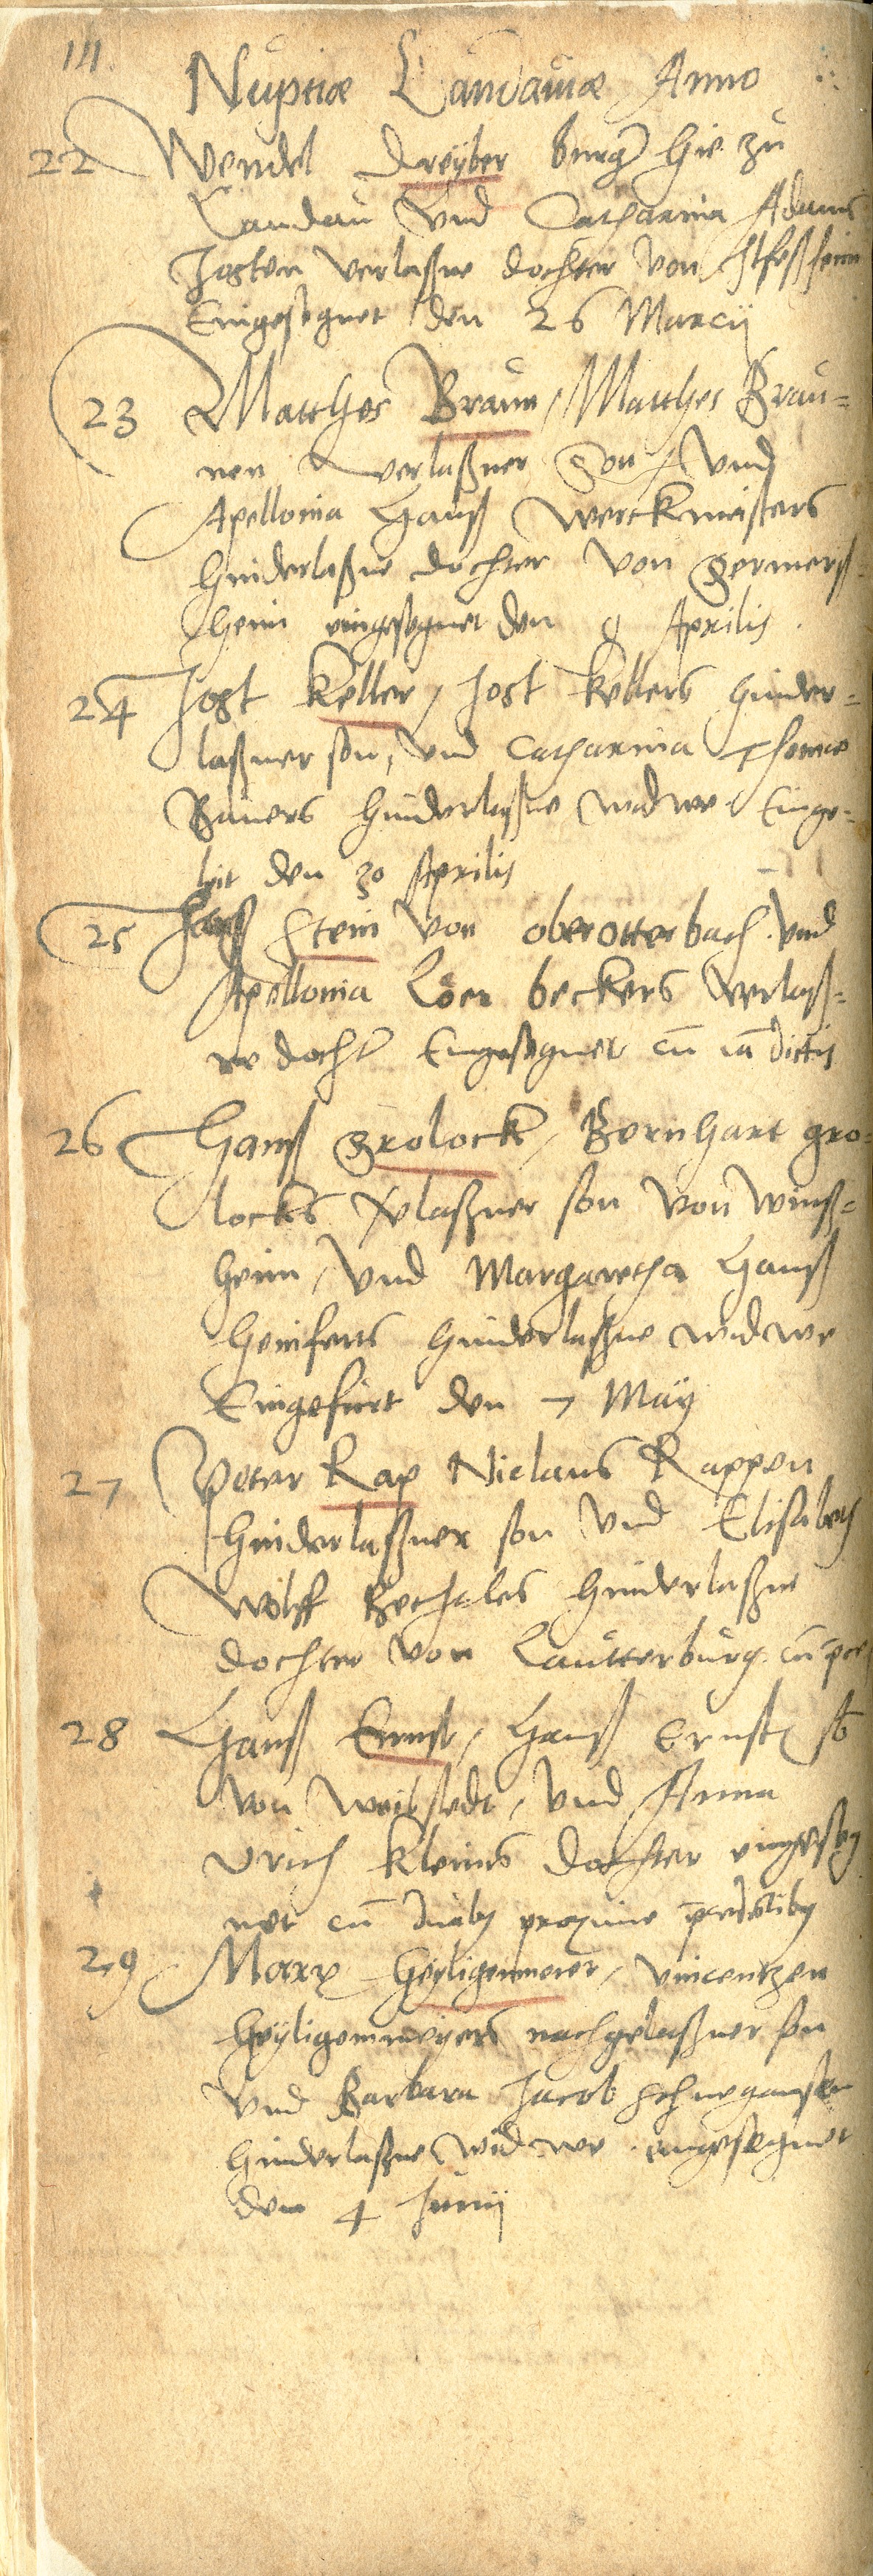 111
Nuptiæ Landauiæ Anno
22 Wendel Dreÿber burger hie zu
Landau vnd Catharina Adams
Josten verlaßne dochter von
Eingesegnet den 26 Marcij
23 Matthes Braun / Matthes Brau=
nen verlaßner Son / vnd
Apollonia Hanß Werckmeisters
hinderlaßne dochter von Germerß=
heim eingesegnet den 9 Aprilis.
24 Jost Keller / Jost Kellers hinder=
laßner son, vnd Catharina Thomæ
Bauers hinderlaßne widwe Einge=
leit den 30 Aprilis
25 Hanß Stein von oberotterbach. vnd
Apollonia Löer beckers verlaß=
ne dochter Eingesegnet cū iā dictis
26 Hanß Grolock / Bernhart gro=
locks verlaßner son von Winß=
heim / vnd Margaretha Hanß
Heinferts hinderlaßne widwe
Eingefürt den 7 Maÿ
27 Peter Kap Niclaus Kappen
hinderlaßner son vnd Elisabeth
Wolff hinderlaßne
dochter von Lautterburg. cū
28 Hanß Ernst / Hanß Ernsts
von Weibstedt, vnd Anna
Vrich Kleins dochter eingeseg
net cū duabus proxime
29 Marx Heyligenmeier / Vincentzen
Heyligenmeyers nachgelaßner son
vnd Barbara Jacob
hinderlaßne widwe. eingesegnet
den 4 Junij